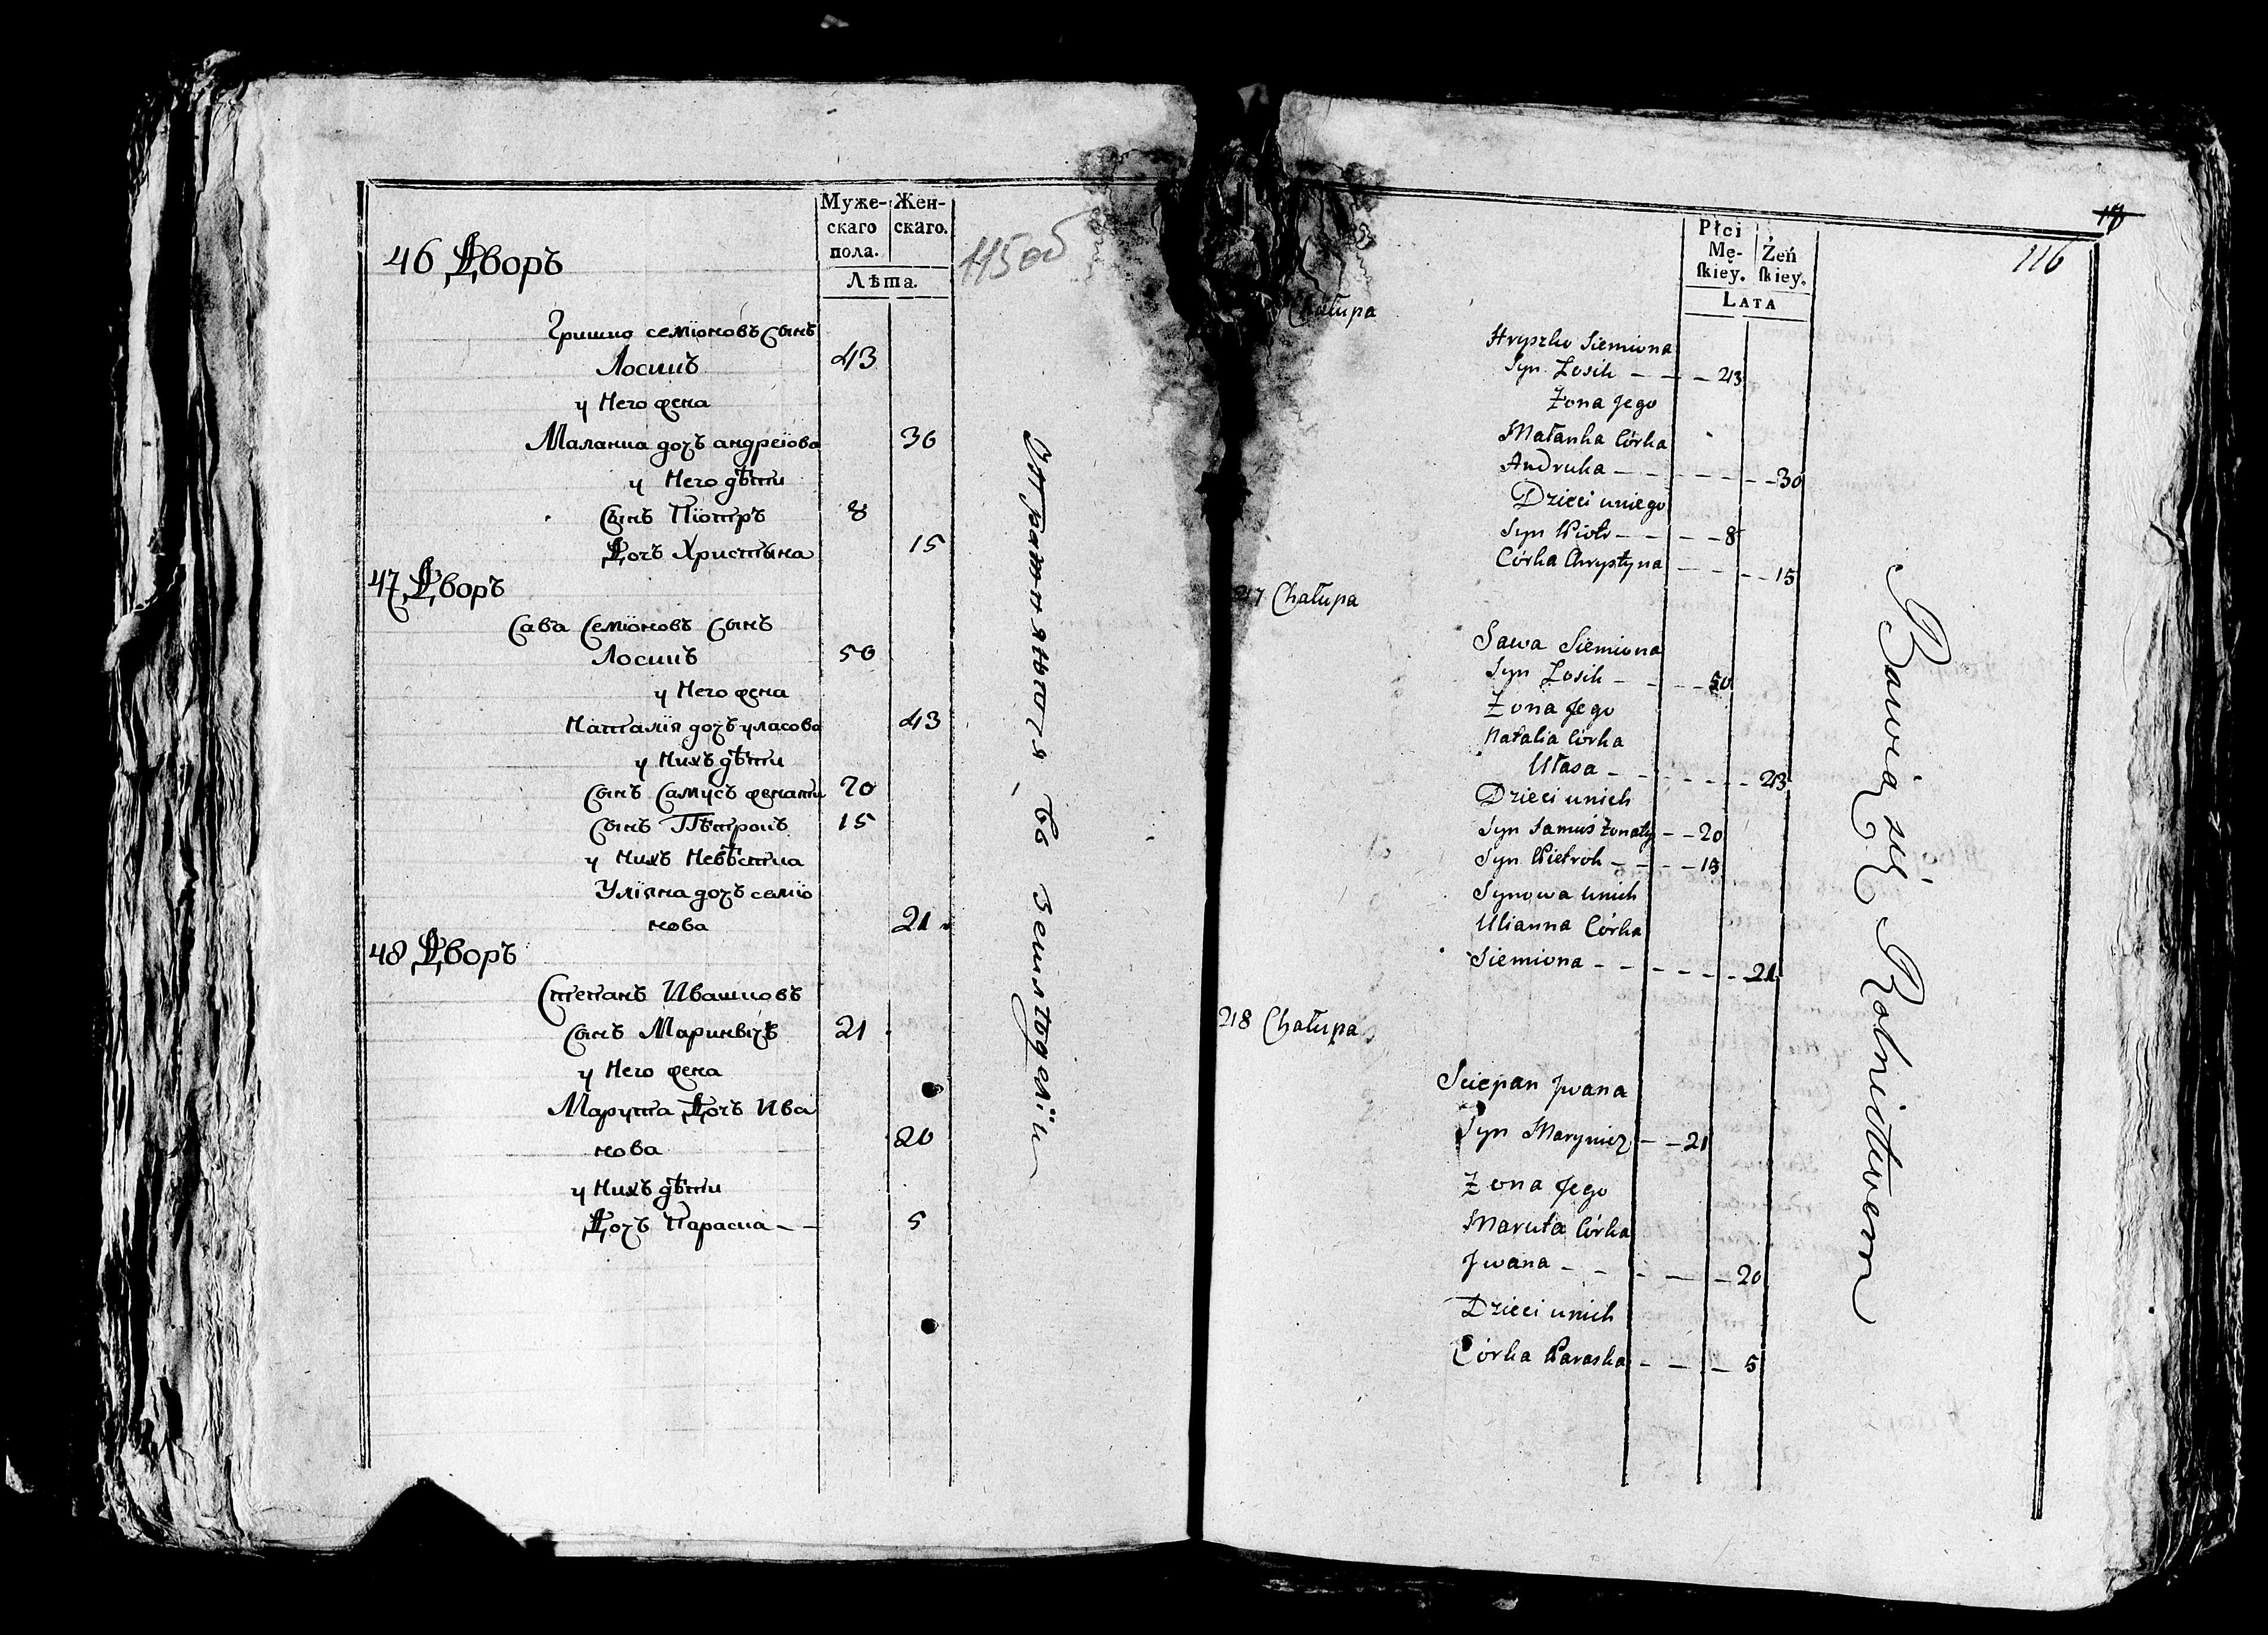 Муже- Жен-
скаго скаго.
пола.
Лѣта.
115 об
46 Дворъ
Гришко семїоновъ Сынъ
Лосикъ 43
у Него жена
Маланка дочъ андреїова 36
у Него дѣти
Сынъ Пїотръ 8
Дочъ Христына 15
47 Дворъ
Сава Семїоновъ Сынъ
Лосикъ 50
у Него жена
Наталїя дочъ уласова 43
у Нихъ дѣти
Сынъ Самусъ женати 20
Сынъ Пѣтрокъ 15
у Нихъ Невѣстка
Улїяна дочъ семїо
нова 21
48 Дворъ
Степанъ Ивашковъ
Сынъ Маринвічъ 21
у Него жена
Марута Дочъ Ива
нова 20
у Нихъ дѣти
Дочъ Параска - - 5
въ земледелїи
116
Płci
Mę- Żeń
skiey. skiey.
LATA
Chałupa
Hryszko Siemiona
Syn Łosik - - - 43
Żona Jego
Małanka Córka
Andruka - - - - - - 30
Dzieci uniego
Syn Piotr - - - - 8
Córka Chrystyna - - - - 15
47 Chałupa
Sawa Siemiona
Syn Łosik - - - - 50
Żona Jego
Natalia Córka
Ułasa - - - - - - - 43
Dzieci unich
Syn Samuś żonaty - - 20
Syn Pietrok - - - - 15
Synowa unich
Ulianna Córka
Siemiona - - - - - - - 21
48 Chałupa
Sciepan Jwana
Syn Marynicz - - 21
Żona Jego
Maruta Córka
Jwana - - - - - 20
Dzieci unich
Córka Paraska - - - 5
Bawią się Rolnictwem